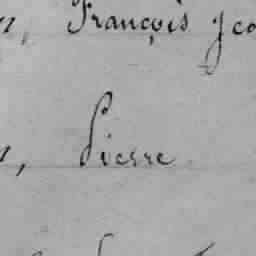 n, François Jea
n, Pierre